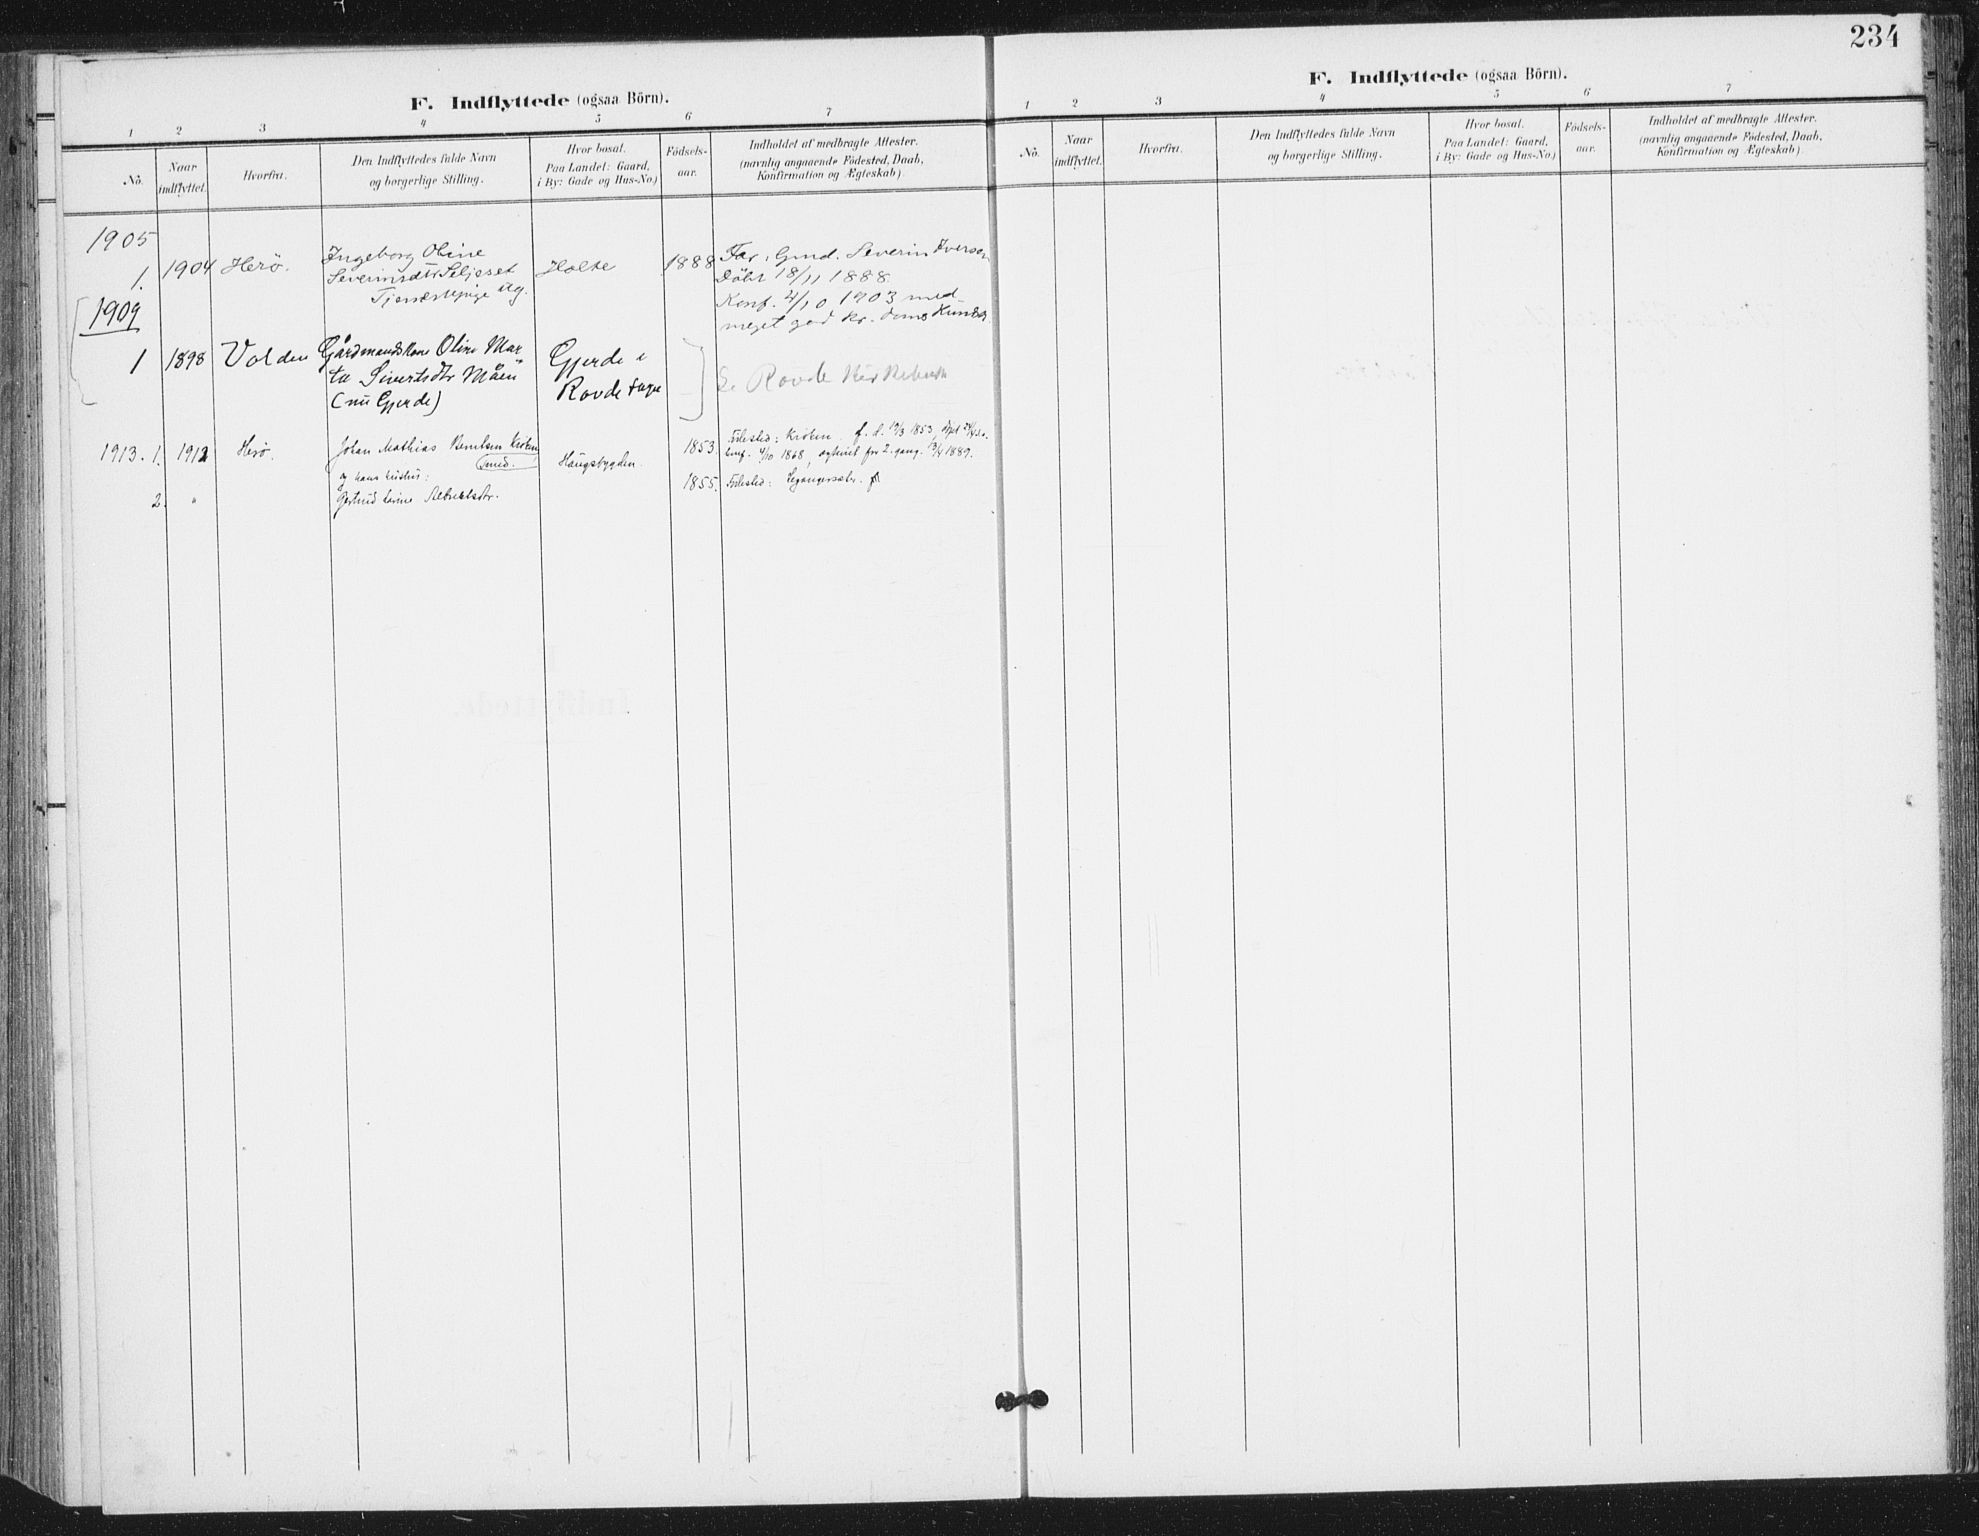 234
F. Indflyttede (ogsaa Börn).
1 2 3 4 5 6 7
No. Naar indflyttet. Hvorfra. Den Indflyttedes fulde Navn og borgerlige Stilling. Hvor bosat. Paa Landet: Gaard, i By: Gade og Hus-No.) Fødsels-aar. Indholdet af medbragte Attester. (navnlig angaaende Fødested, Daab, Konfirmation og Ægteskab).
1905
1. 1904 Herö. Ingeborg Oline Holte 1888 Far: Gmd. Severin Iversen
Severinsdtr Seljeset Döbt 18/11 1888
Tjenestepige ug. Konf. 4/10 1903 med
meget god kr. doms Kundsk.
1909
1 1898 Volden Gårdmandskone Oline Mar- Gjerde i
ta Sivertsdtr Måen Rovde sogn Se Rovde
(nu Gjerde)
1913. 1. 1912 Herö. Johan Mathias Berntsen Kroken 1853. Födested: Kroken f. d. 19/3 1853, döpt
Smed. Haugsbygden. konf. 4/10 1868, egteviet for 2. gang 13/4 1889.
og hans hustru:
2. " Gertrud Karine Albertsdtr. 1855. Födested:
F. Indflyttede (ogsaa Börn).
1 2 3 4 5 6 7
No. Naar indflyttet. Hvorfra. Den Indflyttedes fulde Navn og borgerlige Stilling. Hvor bosat. Paa Landet: Gaard, i By: Gade og Hus-No.) Fødsels-aar. Indholdet af medbragte Attester. (navnlig angaaende Fødested, Daab, Konfirmation og Ægteskab).